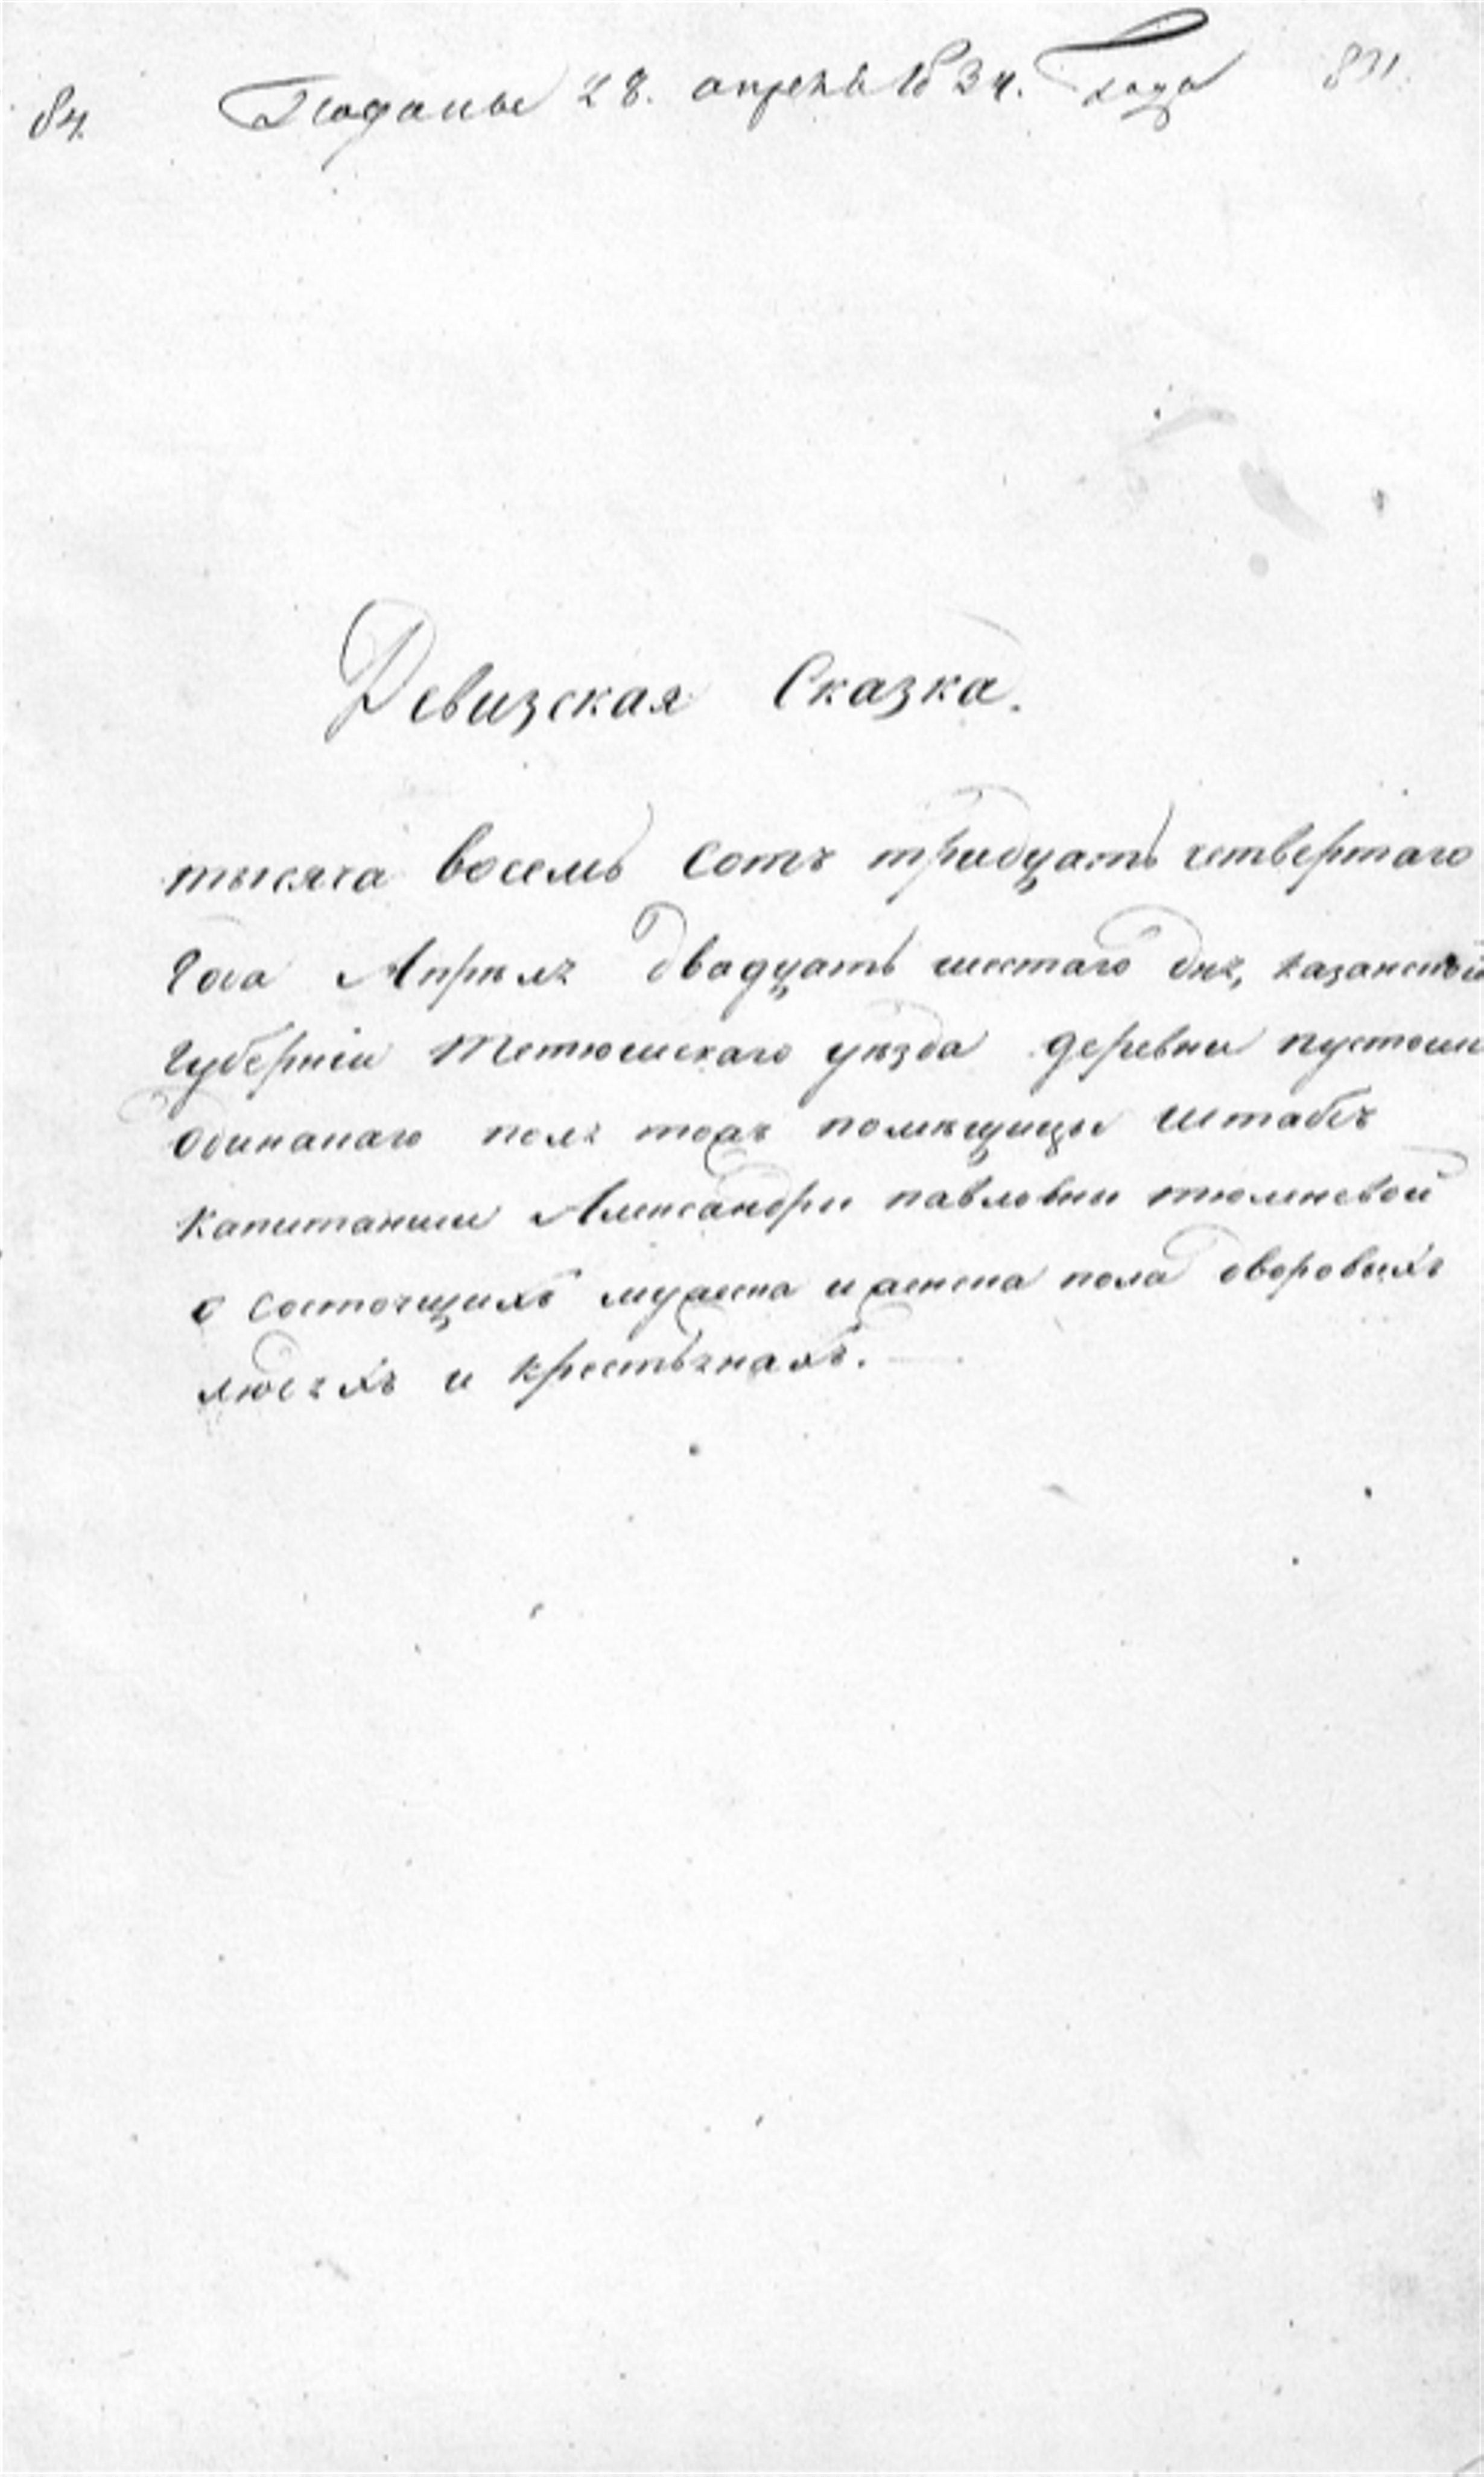 84.
Поданы 28. апреля 1834. Года
831.
Ревизская Сказка.
тысяча восемь сотъ тридцать четвертаго
Года Апреля двадцать шестаго дня, казанской
Губерніи Тетюшскаго уезда деревни пустоши
одинакаго поля тоаж помещицы Штабсъ
Капитанши Александры павловны тюленевой
о состоящихъ мужеска и женска пола дворовыхъ
людяхъ и крестьянахъ.